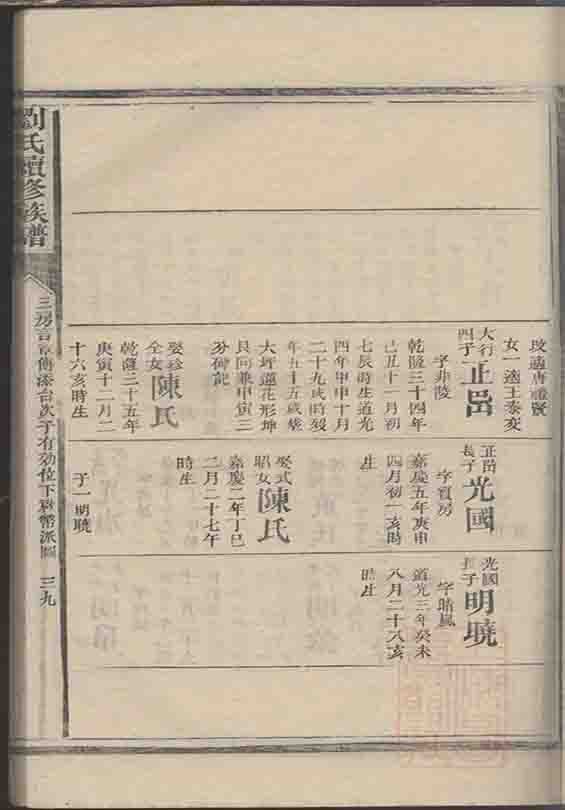 劉氏續修族譜
三房言
位下
三九
玫適唐禮賢
女一適王泰交
大行四子正邑
字非陵
乾隆三十四年
己丑十一月初
七辰時生道光
四年甲申十月
二十九戌時歿
年五十五歲葬
大坪蓮花形坤
艮向兼甲寅三
分碑記
娶珍全女陳氏
乾隆三十五年
庚寅十二月二
十六亥時生
正邑長子光國
字賓房
嘉慶五年庚申
四月初一亥時
生
娶式昭女陳氏
嘉慶二年丁巳
二月二十七午
時生
子一明曉
光國長子明曉
字晴嵐
道光三年癸未
八月二十八亥
時生